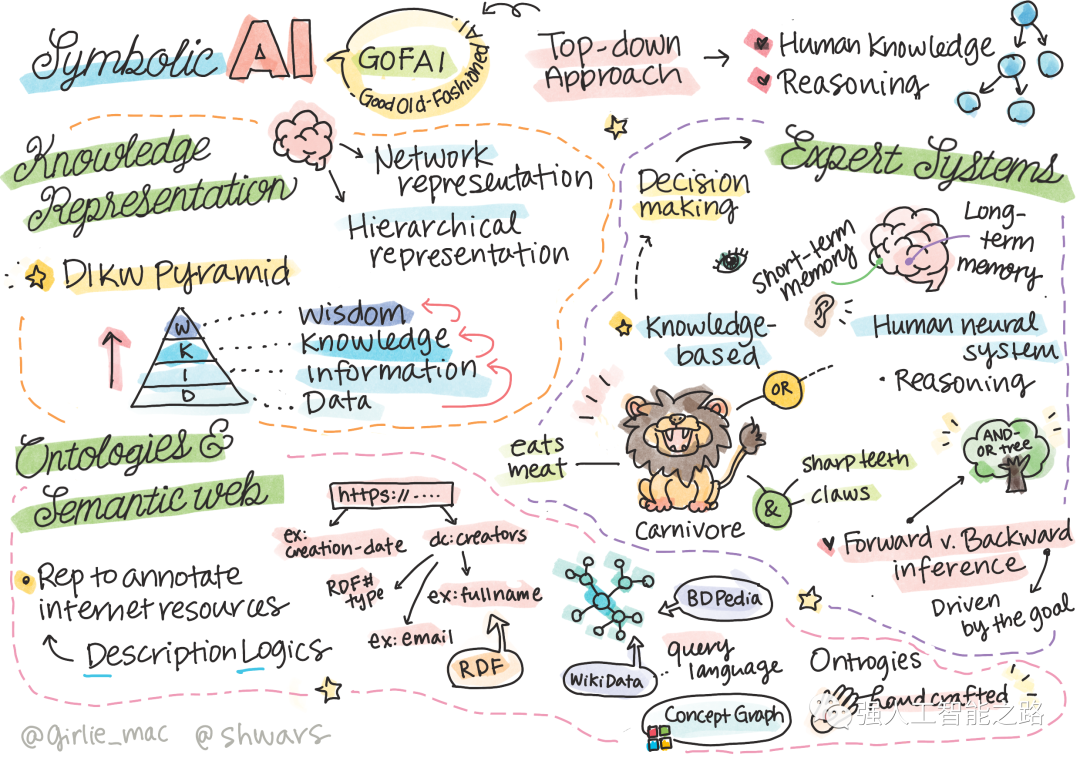 Symbolic AI
GOFAI
Good Old-Fashioned AI
Top-down
Approach
Human Knowledge
Reasoning
Knowledge
Representation
Network
representation
Hierarchical
representation
DIKW Pyramid
W
K
I
D
Wisdom
Knowledge
Information
Data
Expert Systems
Decision
making
short-term
memory
Long-
term
memory
Knowledge-
based
Human neural
system
• Reasoning
OR
eats
meat
sharp teeth
claws
&
Carnivore
AND-
OR tree
Forward v. Backward
inference
Driven
by the goal
Ontologies &
Semantic web
Rep to annotate
internet resources
Description Logics
https://....
ex:
creation-date
dc:creators
RDF#
type
ex:fullname
ex:email
RDF
BDPedia
WikiData
query
language
Concept Graph
Ontrogies
hand crafted
强人工智能之路
@girlie_mac @shwars